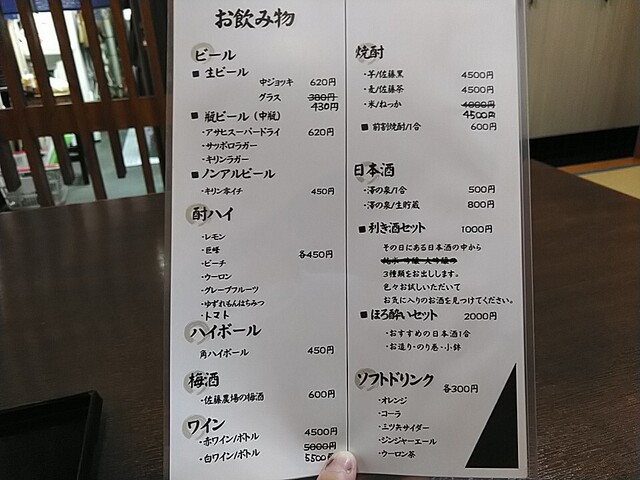 お飲み物
ビール
■ 生ビール
中ジョッキ 620円
グラス 380円
430円
■ 瓶ビール（中瓶）
・アサヒスーパードライ 620円
・サッポロラガー
・キリンラガー
■ ノンアルビール
・キリン零イチ 450円
酎ハイ
・レモン
・巨峰
・ピーチ 各450円
・ウーロン
・グレープフルーツ
・ゆずれもんはちみつ
・トマト
ハイボール
角ハイボール 450円
梅酒
・佐藤農場の梅酒 600円
ワイン
・赤ワイン/ボトル 4500円
・白ワイン/ボトル 5000円
5500円
焼酎
・芋/佐藤黒 4500円
・麦/佐藤茶 4500円
・米/ねっか 4000円
4500円
■ 前割焼酎/1合 600円
日本酒
・澤の泉/1合 500円
・澤の泉/生貯蔵 800円
■ 利き酒セット 1000円
その日にある日本酒の中から
純米 吟醸 大吟醸の
3種類をお出しします。
色々お試しいただいて
お気に入りのお酒を見つけてください。
■ ほろ酔いセット 2000円
・おすすめの日本酒1合
・お造り・のり巻・小鉢
ソフトドリンク 各300円
・オレンジ
・コーラ
・三ツ矢サイダー
・ジンジャーエール
・ウーロン茶